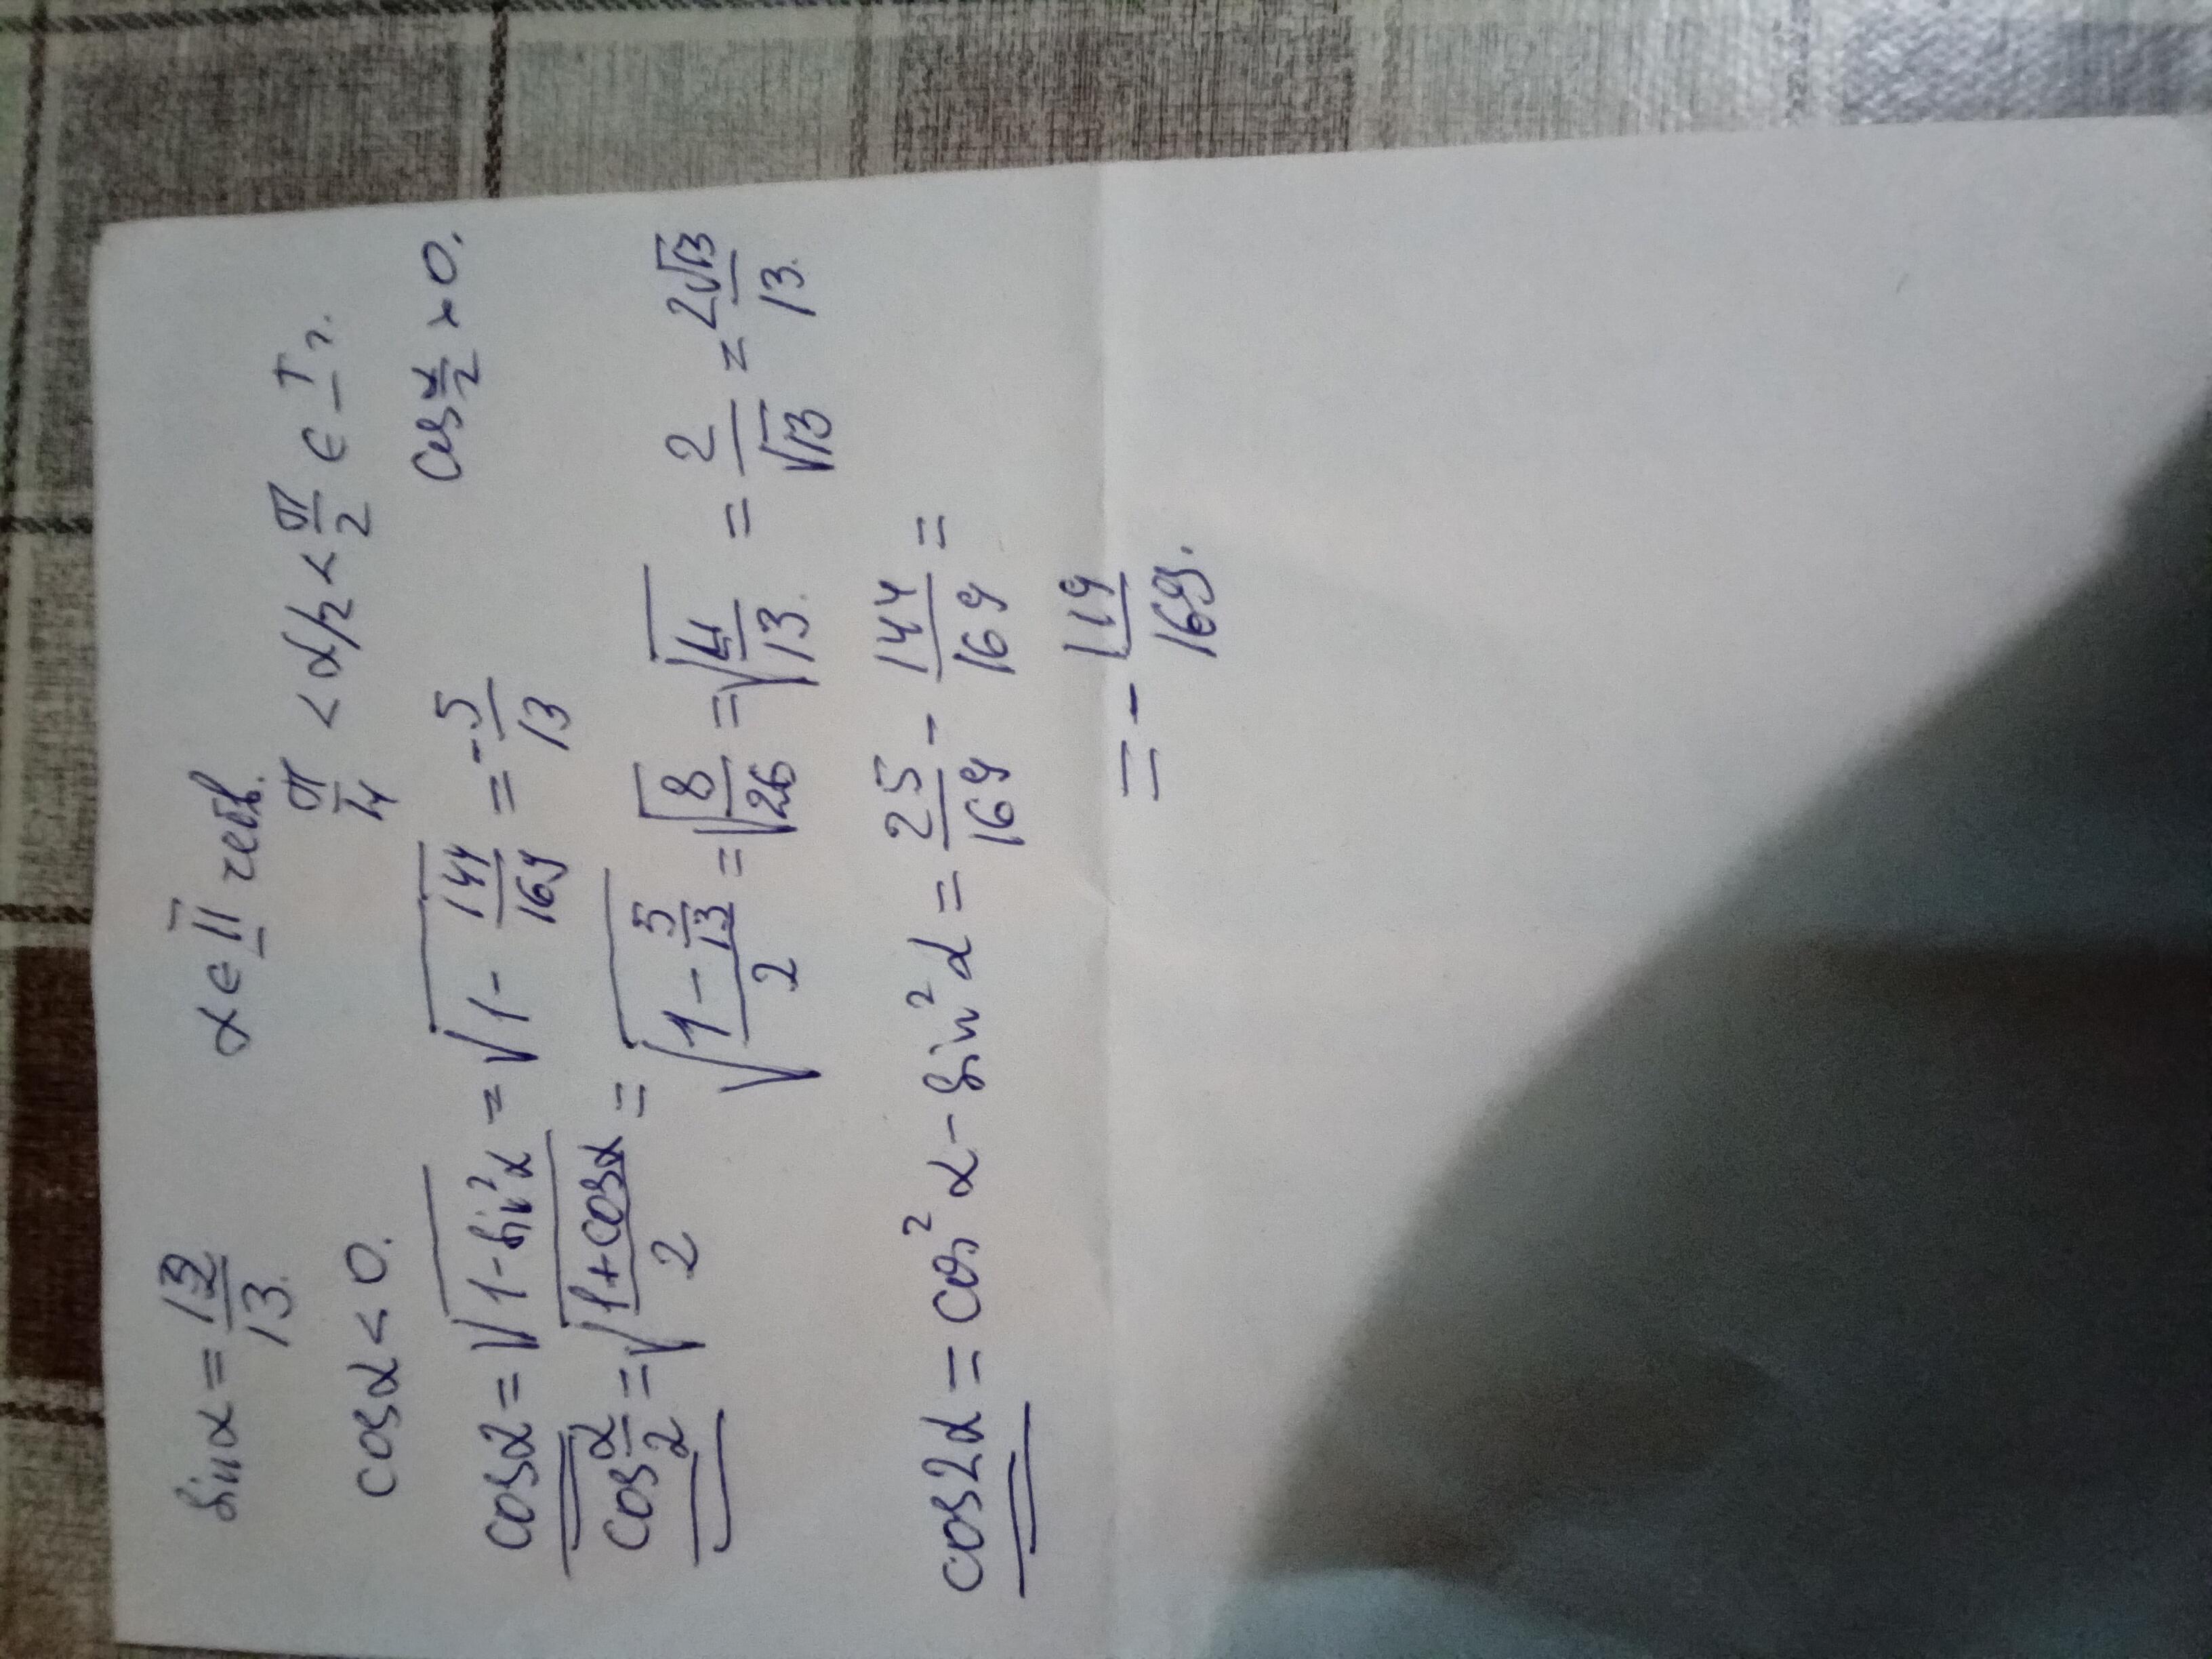 sin α = 12/13   α ∈ II четв.
π/4 < α/2 < π/2 ∈ I г.
cos α < 0.   cos α/2 > 0.
cos α = √(1 - sin² α) = √(1 - 144/169) = -5/13
cos α/2 = √((1 + cos α)/2) = √((1 - 5/13)/2) = √(8/26) = √(4/13) = 2/√13 = 2√13/13
cos 2α = cos² α - sin² α = 25/169 - 144/169 =
= - 119/169.